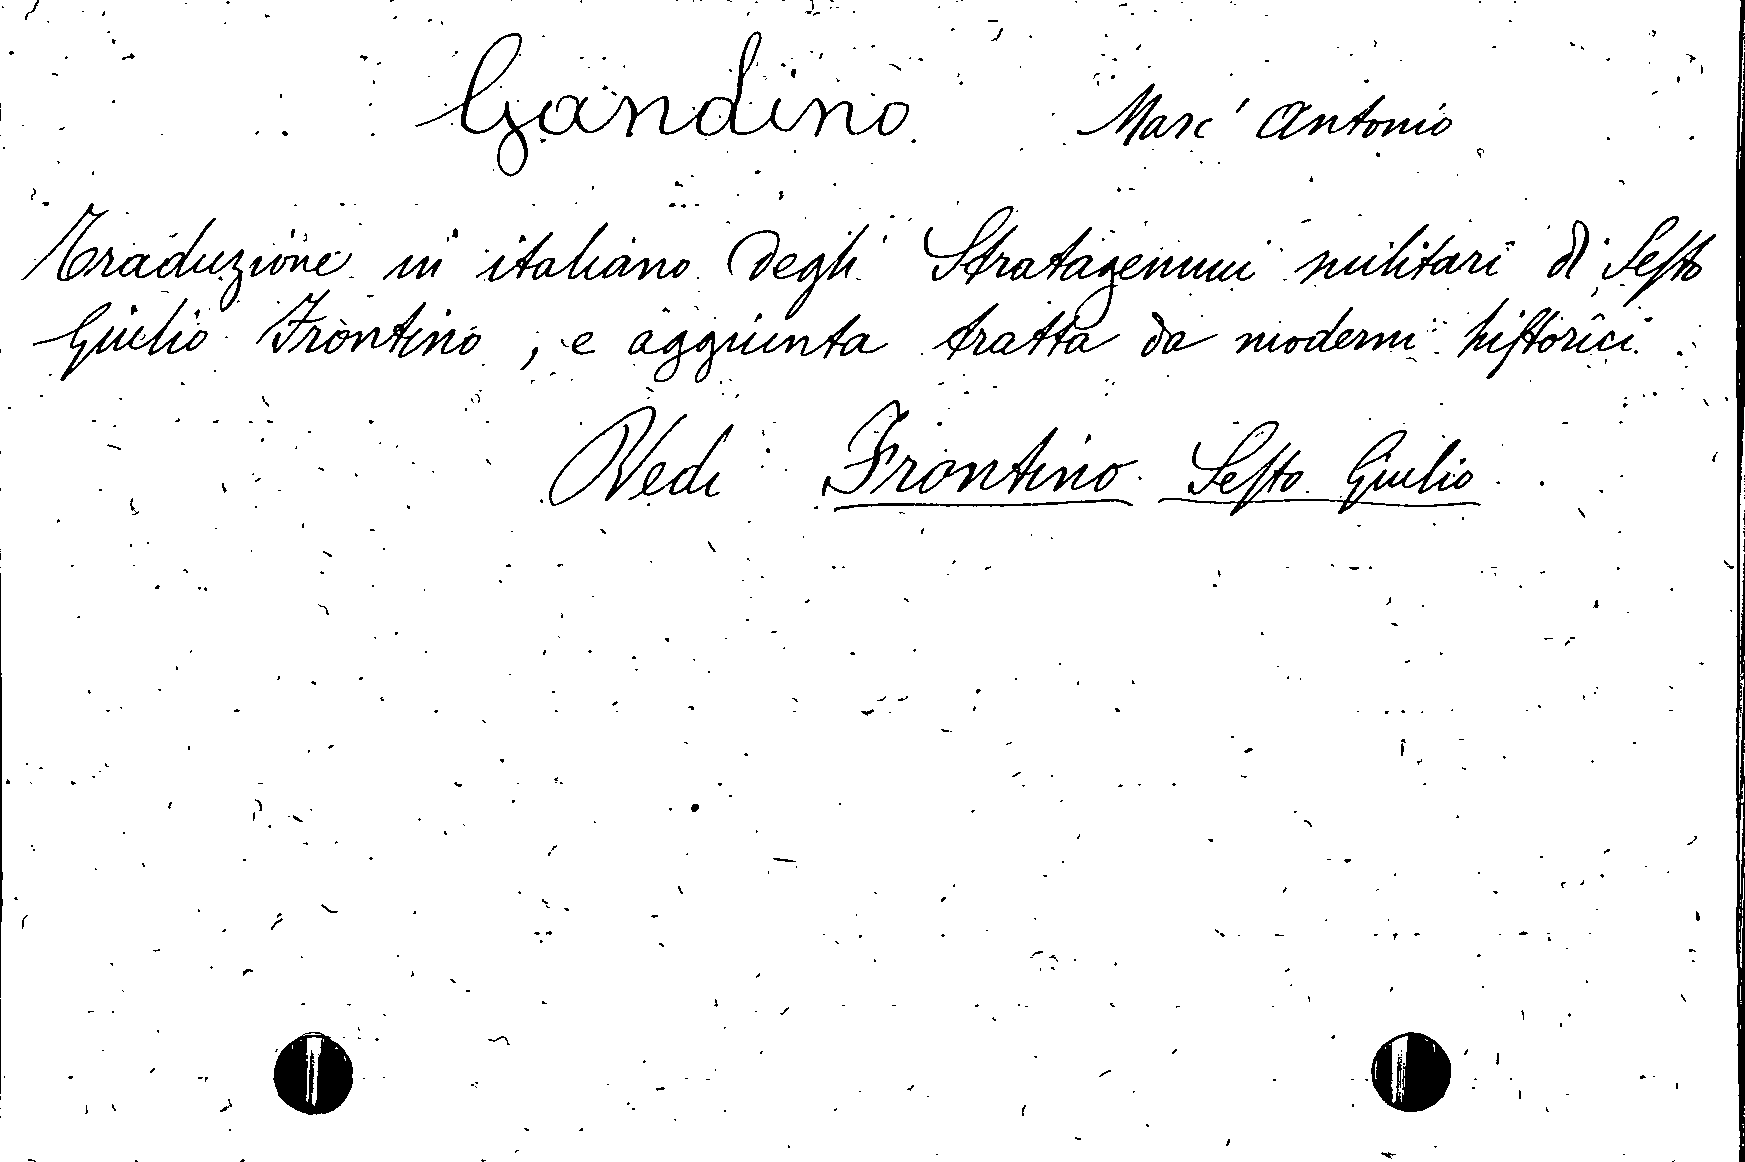 Gandino Marc' Antonio
Traduzione in italiano degli Stratagemmi militari di Sesto
Giulio Frontino, e aggiunta tratta da moderni historici
Vedi Frontino Sesto Giulio